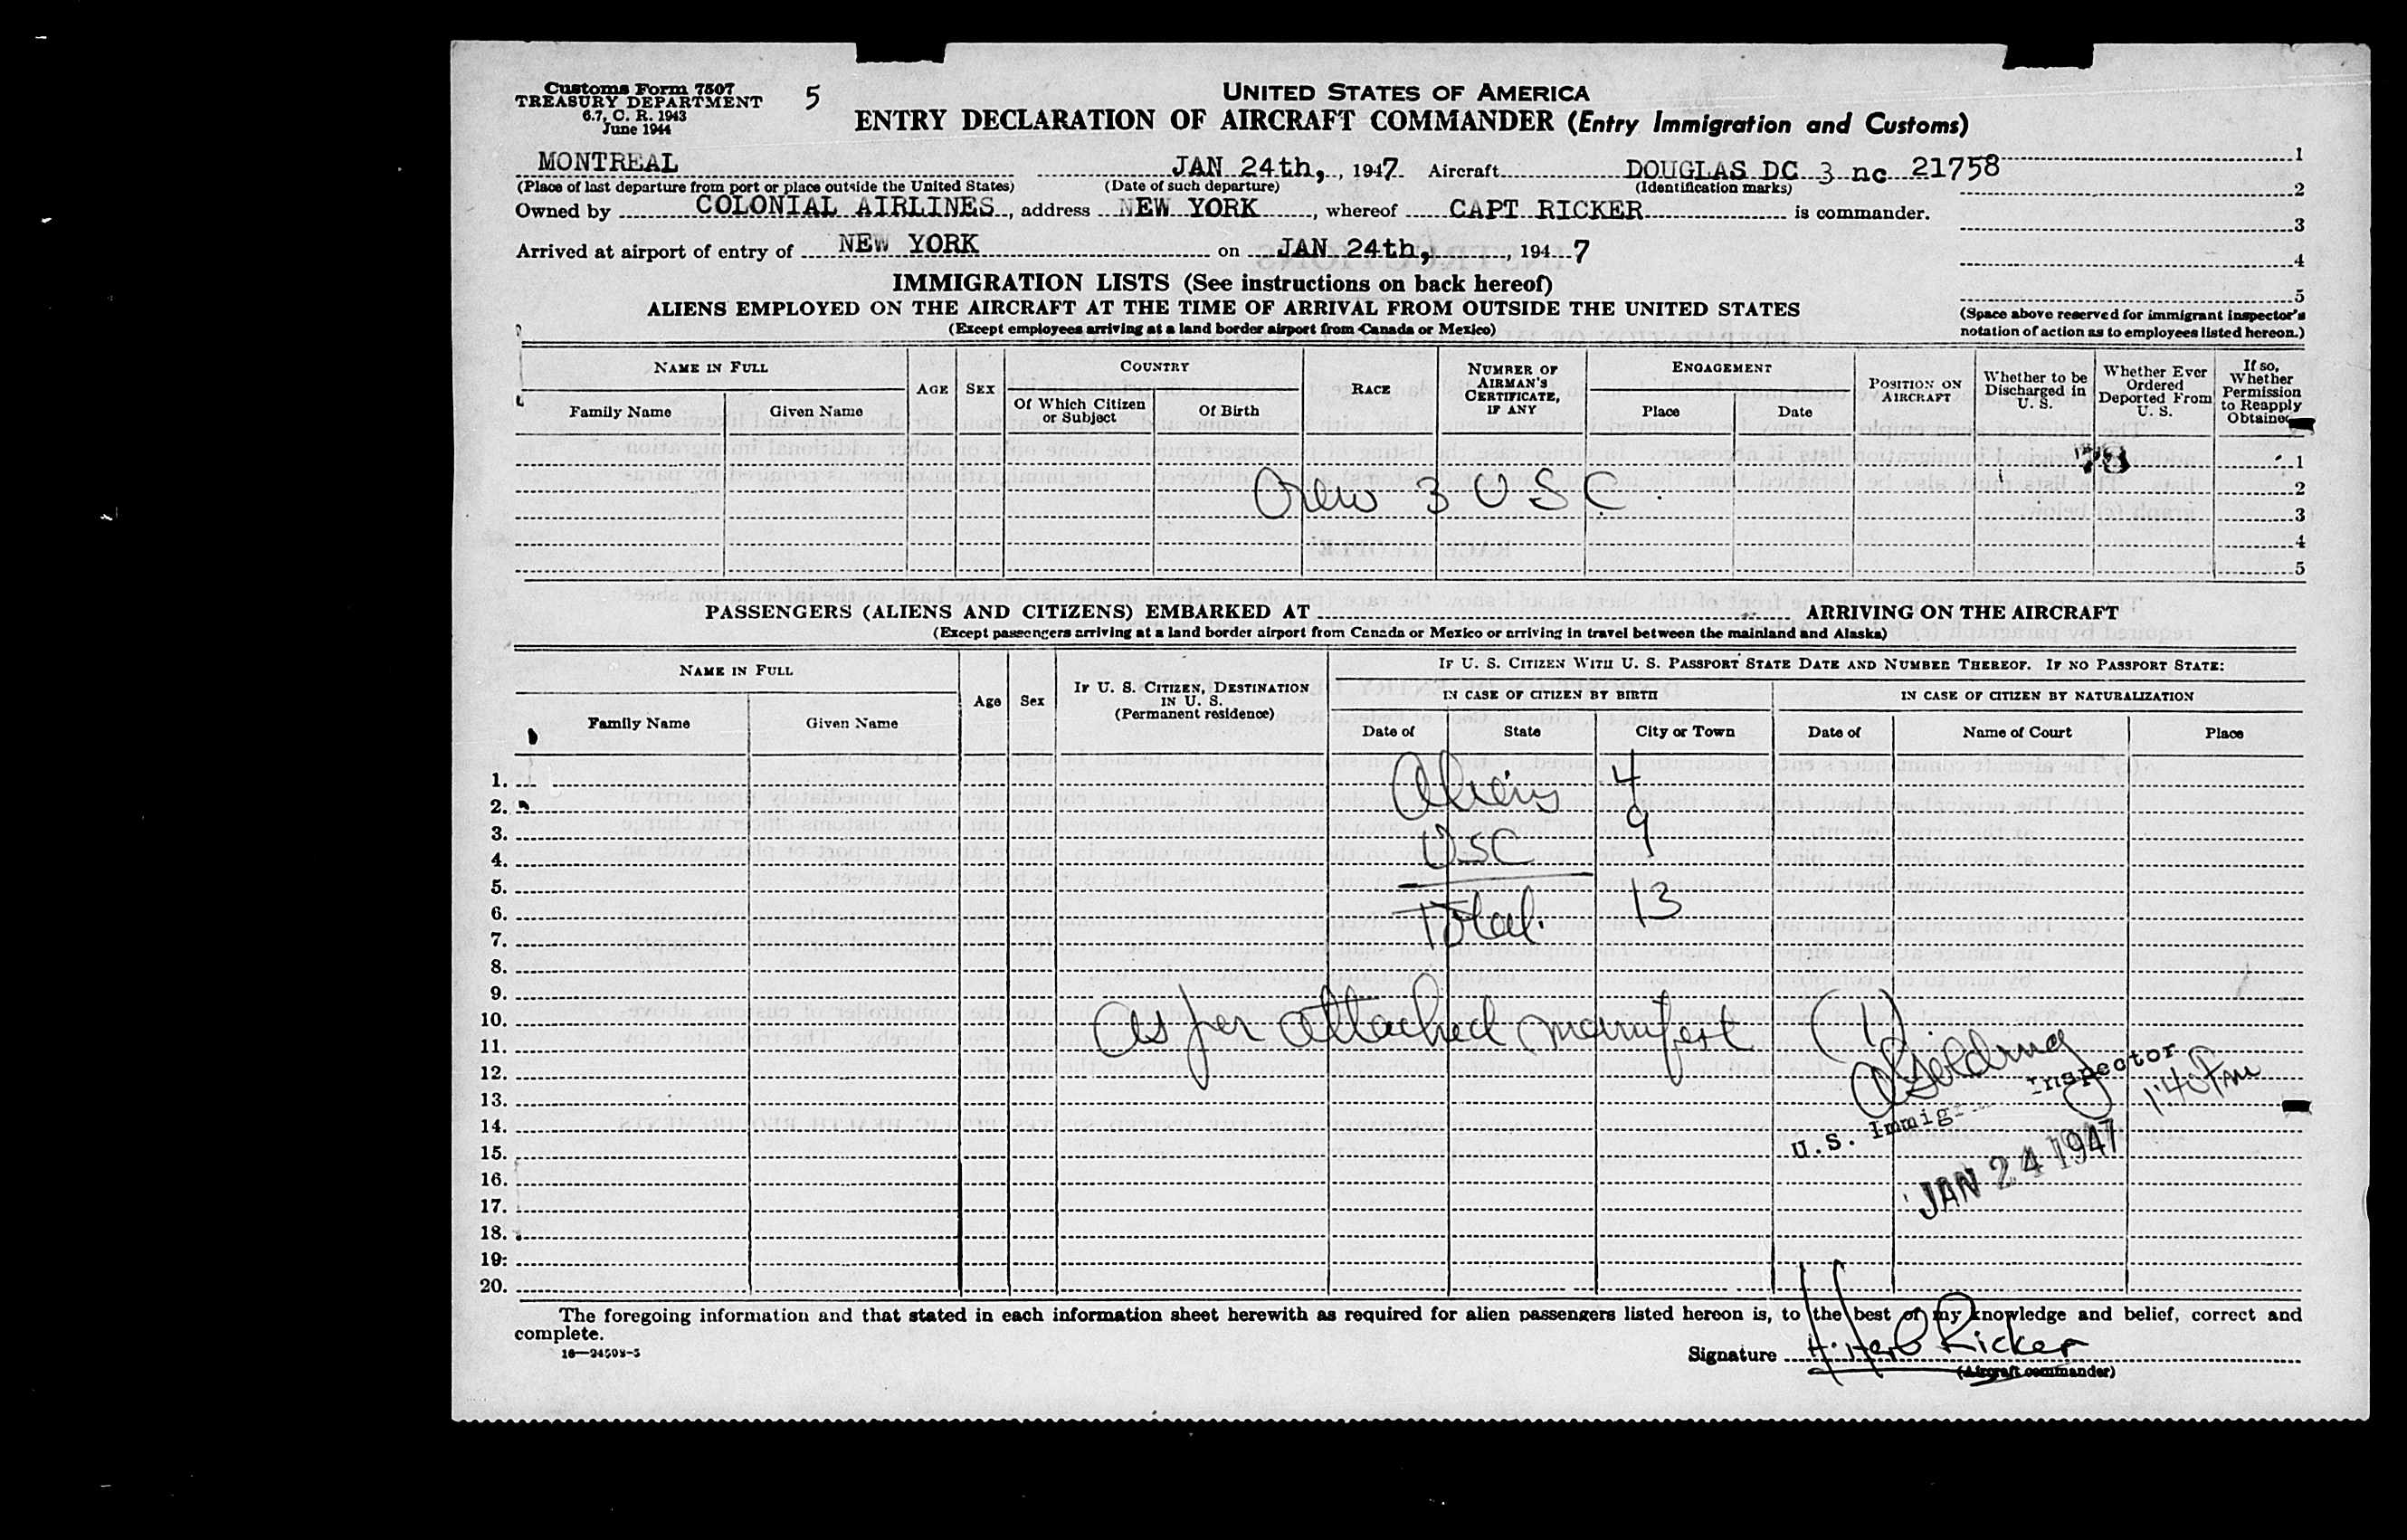 Customs Form 7507
TREASURY DEPARTMENT
6.7, C. R. 1943
June 1944
5
UNITED STATES OF AMERICA
ENTRY DECLARATION OF AIRCRAFT COMMANDER (Entry Immigration and Customs)
MONTREAL JAN 24th, , 1947 Aircraft DOUGLAS DC 3 nc 21758 1
(Place of last departure from port or place outside the United States) (Date of such departure) (Identification marks) 2
Owned by COLONIAL AIRLINES , address NEW YORK , whereof CAPT RICKER is commander.
3
Arrived at airport of entry of NEW YORK on JAN 24th, , 194 7
4
IMMIGRATION LISTS (See instructions on back hereof)
5
ALIENS EMPLOYED ON THE AIRCRAFT AT THE TIME OF ARRIVAL FROM OUTSIDE THE UNITED STATES
(Except employees arriving at a land border airport from Canada or Mexico)
(Space above reserved for immigrant inspector's
notation of action as to employees listed hereon.)
NAME IN FULL
Family Name Given Name
AGE SEX
COUNTRY
Of Which Citizen
or Subject
Of Birth
RACE
NUMBER OF
AIRMAN'S
CERTIFICATE,
IF ANY
ENGAGEMENT
Place Date
POSITION ON
AIRCRAFT
Whether to be
Discharged in
U. S.
Whether Ever
Ordered
Deported From
U. S.
If so,
Whether
Permission
to Reapply
Obtained
1
2
Crew 3 USC
3
4
5
PASSENGERS (ALIENS AND CITIZENS) EMBARKED AT ARRIVING ON THE AIRCRAFT
(Except passengers arriving at a land border airport from Canada or Mexico or arriving in travel between the mainland and Alaska)
NAME IN FULL
Family Name Given Name
Age Sex
IF U. S. CITIZEN, DESTINATION
IN U. S.
(Permanent residence)
IF U. S. CITIZEN WITH U. S. PASSPORT STATE DATE AND NUMBER THEREOF. IF NO PASSPORT STATE:
IN CASE OF CITIZEN BY BIRTH IN CASE OF CITIZEN BY NATURALIZATION
Date of State City or Town Date of Name of Court Place
1.
Aliens 4
2.
3.
USC 9
4.
5.
6.
Total. 13
7.
8.
9.
10.
as per attached manifest (1)
11.
12.
13.
14.
15.
16.
17.
18.
19.
20.
Golding
U.S. Immig Inspector
1:40 PM
JAN 24 1947
The foregoing information and that stated in each information sheet herewith as required for alien passengers listed hereon is, to the best of my knowledge and belief, correct and
complete.
16—24598-5
Signature H. Herb Ricker
(Aircraft commander)